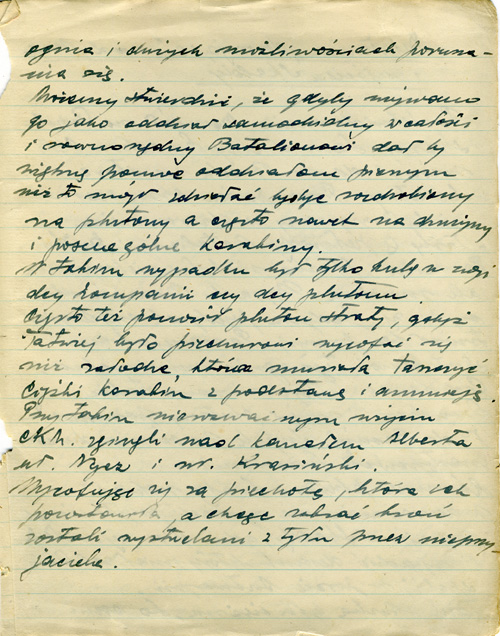 ognia i dużych możliwościach porusza-
nia się.
Możemy stwierdzić, że gdyby używano
go jako oddział samodzielny w całości
i równorzędny Batalionowi dał by
większą pomoc oddziałom pieszym
niż to mógł zdziałać będąc rozdrobiony
na plutony a często nawet na drużyny
i poszczególne karabiny.
W takim wypadku był tylko kulą u nogi
dcy kompanii czy dcy plutonu.
Często też ponosił pluton straty, gdyż
łatwiej było piechurowi wycofać się
niż załodze, która musiała taszczyć
ciężki karabin z podstawą i amunicją.
Przy takim nierozważnym użyciu
CKM. zginęli nad kanałem Alberta
uł. Nycz i uł. Krasiński.
Wycofując się za piechotą, która ich
pozostawiła, a chcąc zabrać broń
zostali wystrzelani z tyłu przez nieprzy-
jaciela.